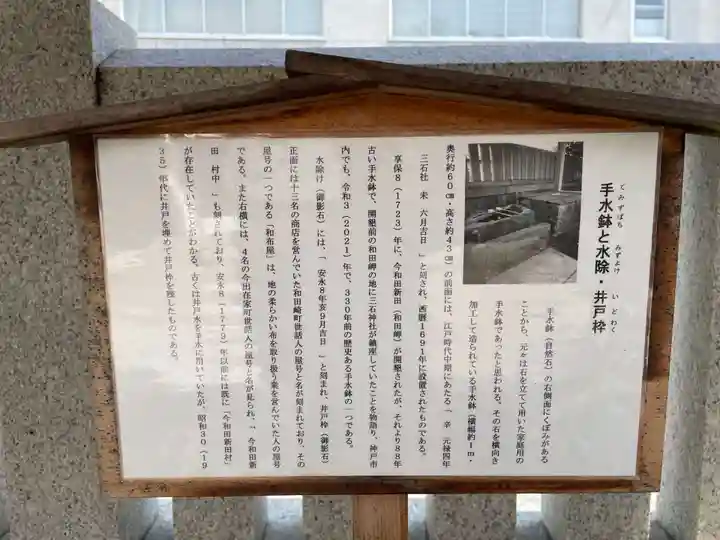 手水鉢と水除・井戸枠
てみずばち みずよけ いどわく
手水鉢（自然石）の右側面にくぼみがある
ことから、元々は石を立てて用いた家庭用の
手水鉢であったと思われる。その石を横向き
加工して造られている手水鉢（横幅約1ｍ・
奥行約60㎝・高さ約43㎝）の前面には、江戸時代中期にあたる「 辛 元禄四年
三石社 未 六月吉日 」と刻まれ、西暦1691年に設置されたものである。
享保8（1723）年に、今和田新田（和田岬）が開墾されたが、それより88年
古い手水鉢で、開墾前の和田岬の地に三石神社が鎮座していたことを物語り、神戸市
内でも、令和3（2021）年で、330年前の歴史ある手水鉢の一つである。
水除け（御影石）には、「 安永8年亥9月吉日 」と刻まれ、井戸枠（御影石）
正面には十三名の商店を営んでいた和田崎町世話人の屋号と名が刻まれており、その
屋号の一つである「和布屋」は、地の柔らかい布を取り扱う業を営んでいた人の屋号
である。また右横には、4名の今出在家町世話人の屋号と名が見られ、「 今和田新
田 村中 」も刻されており、安永8（1779）年以前には既に「今和田新田村」
が存在していたことがわかる。古くは井戸水を手水に用いていたが、昭和30（19
35）年代に井戸を埋めて井戸枠を残したものである。